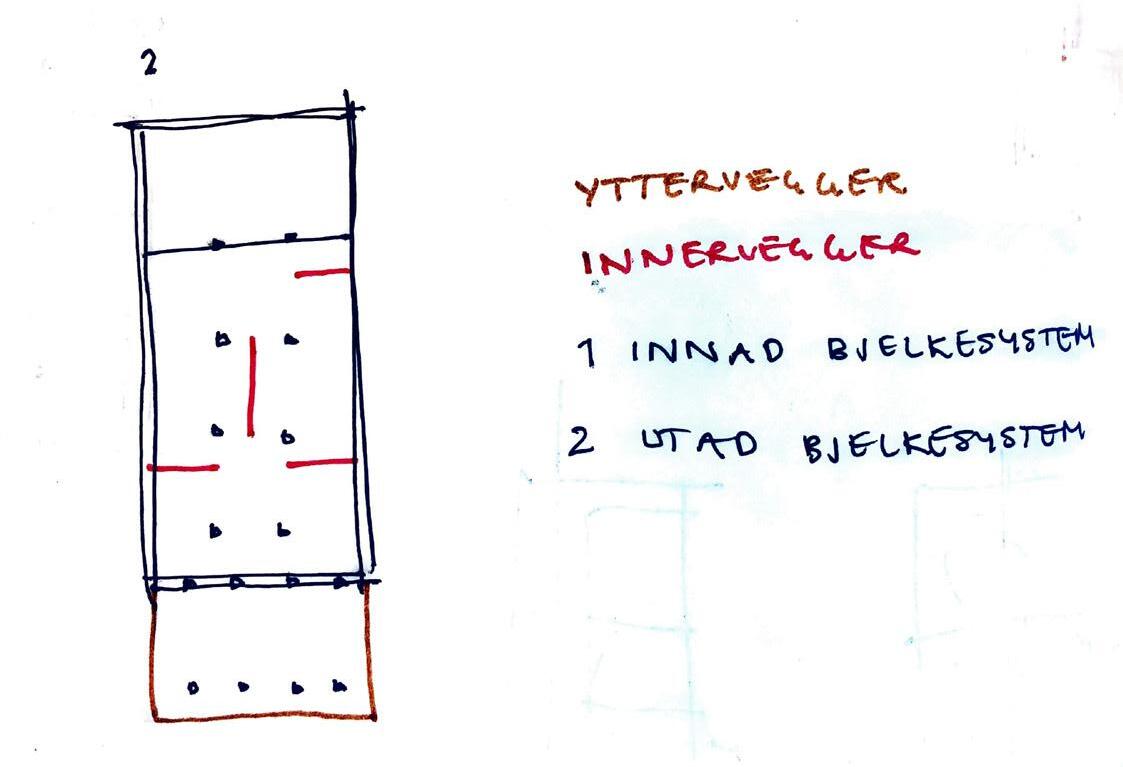 2
YTTERVEGGER
INNERVEGGER
1 INNAD BJELKESYSTEM
2 UTAD BJELKESYSTEM